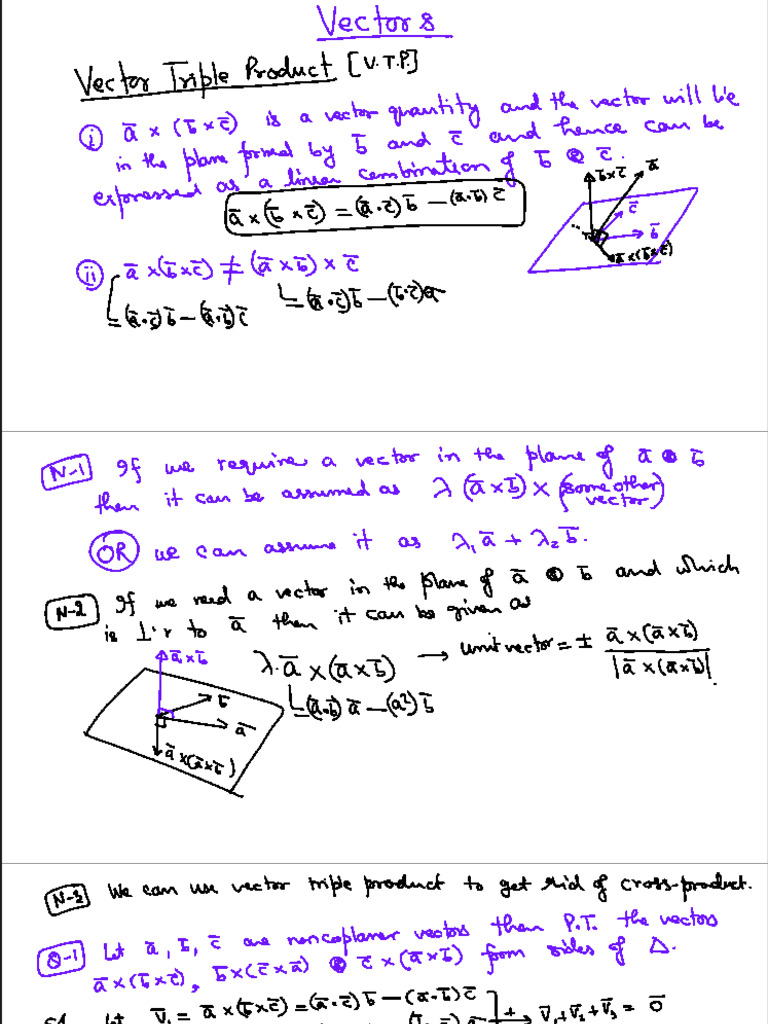 Vectors
Vector Triple Product [V.T.P.]
(i) a̅ × (b̅ × c̅) is a vector quantity and the vector will be
in the plane formed by b̅ and c̅ and hence can be
expressed as a linear combination of b̅ & c̅.
a̅ × (b̅ × c̅) = (a̅·c̅)b̅ − (a̅·b̅)c̅
b̅×c̅
a̅
c̅
b̅
a̅×(b̅×c̅)
(ii) a̅ × (b̅ × c̅) ≠ (a̅ × b̅) × c̅
= (a̅·c̅)b̅ − (b̅·c̅)a̅
= (a̅·c̅)b̅ − (a̅·b̅)c̅
N-1 If we require a vector in the plane of a̅ & b̅
then it can be assumed as λ (a̅ × b̅) × (some other
vector)
OR we can assume it as λ₁a̅ + λ₂b̅.
N-2 If we need a vector in the plane of a̅ & b̅ and which
is ⊥'r to a̅ then it can be given as
λ·a̅ × (a̅ × b̅) → unit vector = ± a̅×(a̅×b̅) / |a̅×(a×b̅)|.
= (a̅·b̅)a̅ − (a²)b̅
a̅×b̅
b̅
a̅
a̅×(a̅×b̅)
N-3 We can use vector triple product to get rid of cross-product.
Q-1 Let a̅, b̅, c̅ are noncoplaner vectors then P.T. the vectors
a̅×(b̅×c̅), b̅×(c̅×a̅) & c̅×(a̅×b̅) from sides of Δ.
Let V̅₁ = a̅×(b̅×c̅) = (a̅·c̅)b̅ − (a̅·b̅)c̅ + → V̅₁+V̅₂+V̅₃ = 0̅